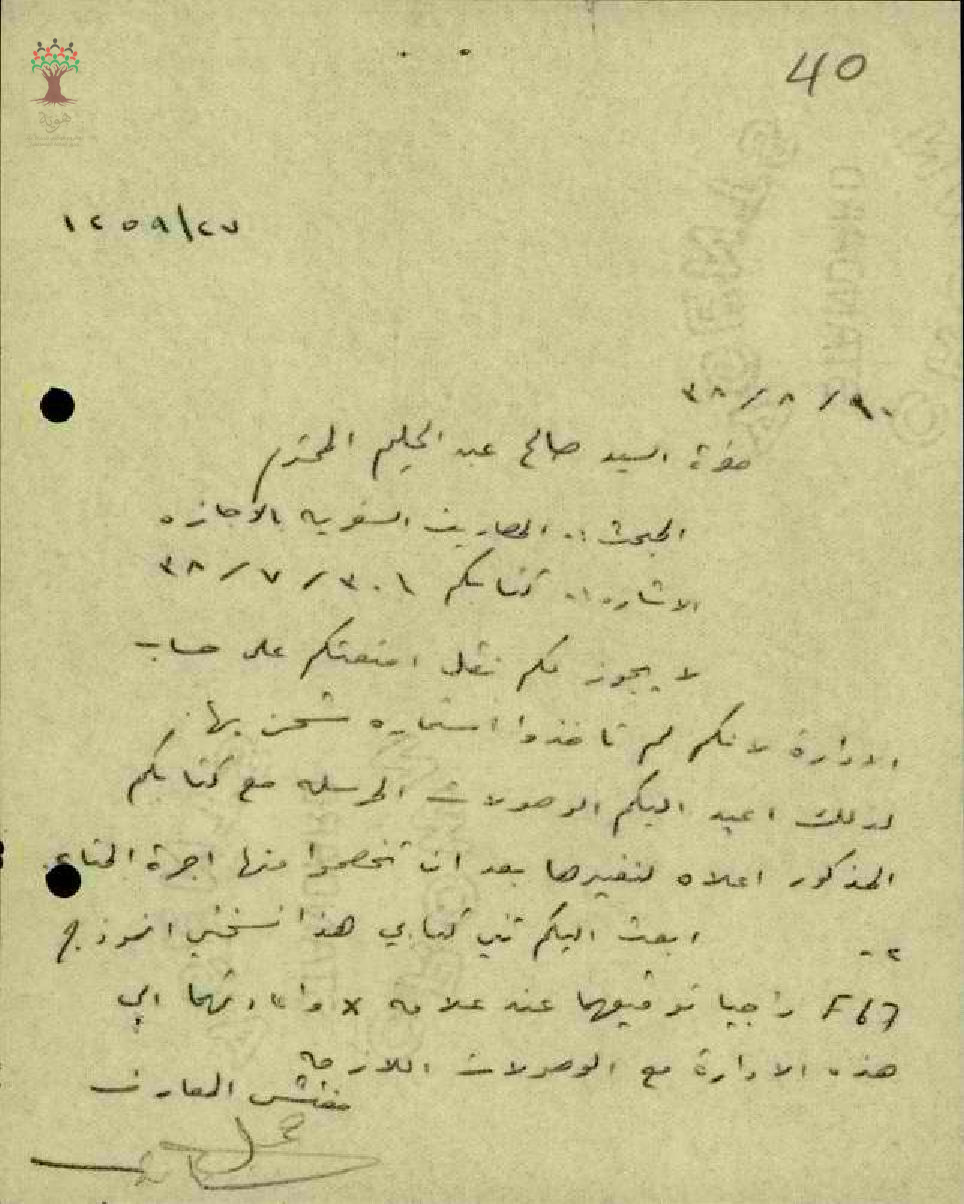 40
هوية
١٢٥٩/٢٧
٣٨/٨/٩٠
حضرة السيد صالح عبد الحليم المحترم
المبحث :- المصاريف السفريه بالاجازه
الاشاره :- كتابكم ٣٨/٧/٣٠١
لا يجوز لكم نقل امتعتكم على حساب
الادارة لانكم لم تاخذوا استماره شحن بها.
لذلك اعيد اليكم الوصولات المرسله مع كتابكم
المذكور اعلاه لتغيرها بعد ان تخصموا منها اجرة المتاع.
٢- ابعث اليكم في كتابي هذا نسختي انموذج
F 67 راجيا توقيعهما عند علامه x واعادتهما الى
هذه الادارة مع الوصولات اللازمه
مفتش المعارف